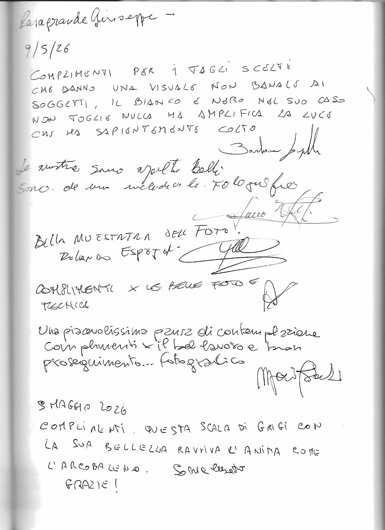 Casagrande Giuseppe
9/5/26
COMPLIMENTI PER I TAGLI SCELTI
CHE DANNO UNA VISUALE NON BANALE DI
SOGGETTI, IL BIANCO E NERO NEL SUO CASO
NON TOGLIE NULLA MA AMPLIFICA LA LUCE
CHE HA SAPIENTEMENTE COLTO
Barbara
Le mostre sono molto Belle
Sono di una
BELLA MUESTATRA DELL FOTO.
ROLANDO ESPEJO
COMPLIMENTI X LE BELLE FOTO E
TECNICA
Una piacevolissima pausa di contemplazione
Complimenti x il bel lavoro e buon
proseguimento... fotografico
9 MAGGIO 2026
COMPLIMENTI. QUESTA SCALA DI GRIGI CON
LA SUA BELLEZZA RAVVIVA L'ANIMA COME
L'ARCOBALENO.
GRAZIE!